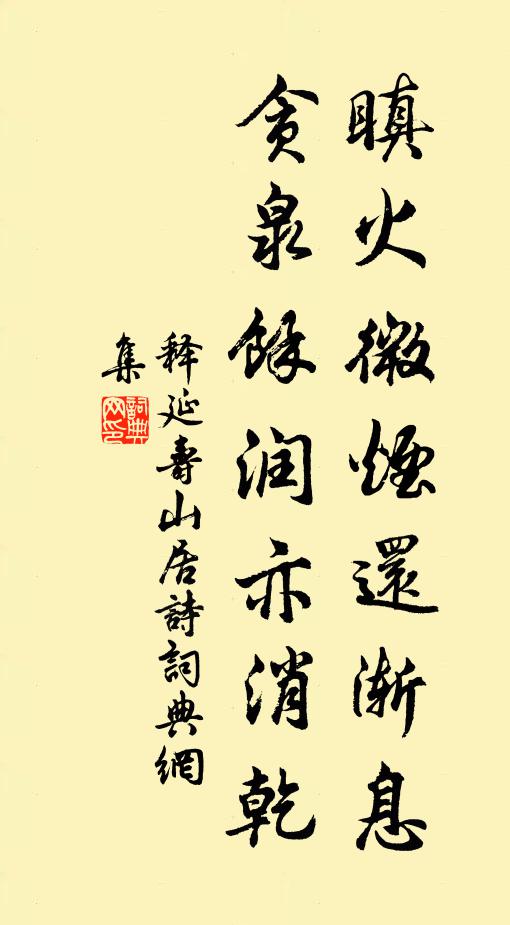 瞋火微煙還漸息
貪泉餘润亦消乾
释延壽山居詩詞典網
集
詞典
网印